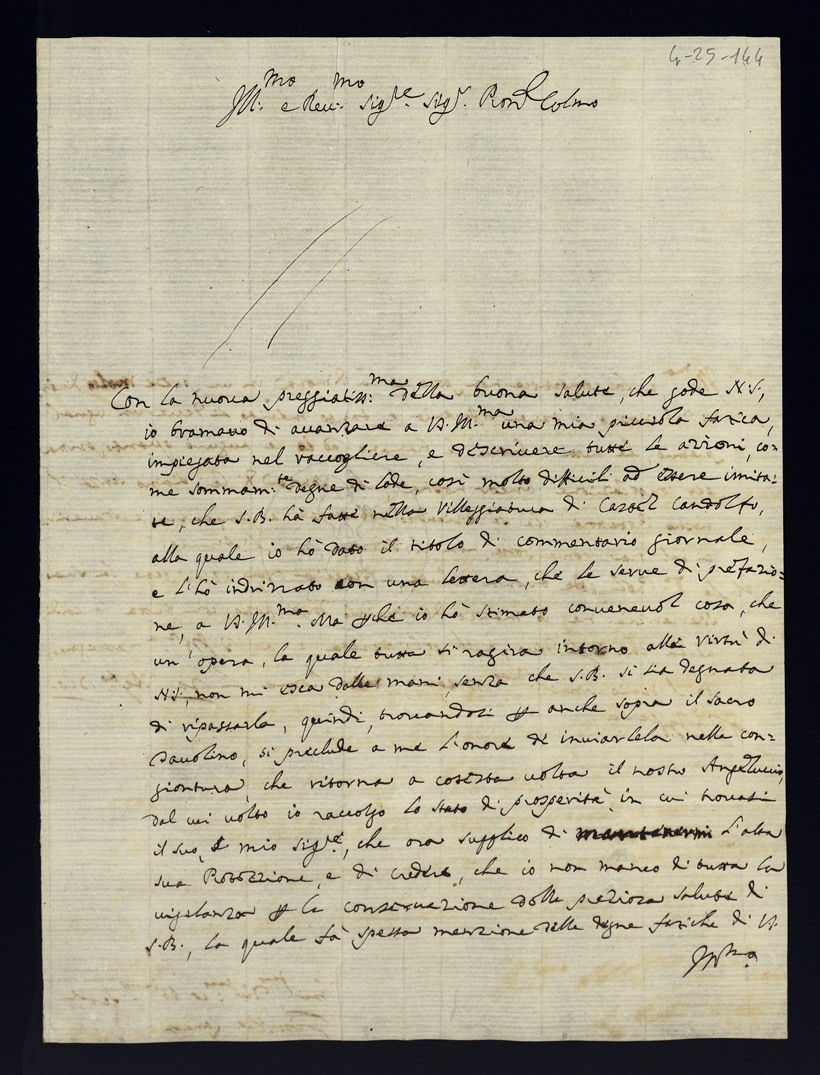 4-25-144
Ill:mo e Rev:mo Sig.re Sig.r Pron Colmo
Con la nuova preggiatiss:ma della buona salute, che gode N.S.,
io bramavo di avanzare a V.Ill.ma una mia piccola fatica,
impiegata nel raccogliere, e descrivere tutte le azzioni, co=
me sommam:te degne di lode, così molto difficili ad essere imita=
te, che S.B. hà fatte nella Villeggiatura di Castel Candolfo,
alla quale io hò dato il titolo di commentario giornale,
e l'hò indrizzato con una lettera, che le serve di prefazio=
ne, a V.Ill.ma. Ma perche io hò stimato convenevol cosa, che
un' opera, la quale tutta si ragira intorno alle virtù di
N.S., non mi esca dalle mani, senza che S.B. si sia degnata
di ripassarla, quindi, trovandosi per anche sopra il sacro
Tavolino, si preclude a me l'onore di inviarlela nella con=
giontura, che ritorna a cotesta volta il nostro Angelucci,
dal cui volto io raccolgo lo stato di prosperità, in cui trovasi
il suo, e mio Sig.re, che ora supplico di l'alta
sua Protezzione, e di credere, che io non manco di tutta la
vigilanza per la conservazione della preziosa salute di
S.B., la quale fà spesso menzione delle degne fatiche di V.
Ill.ma